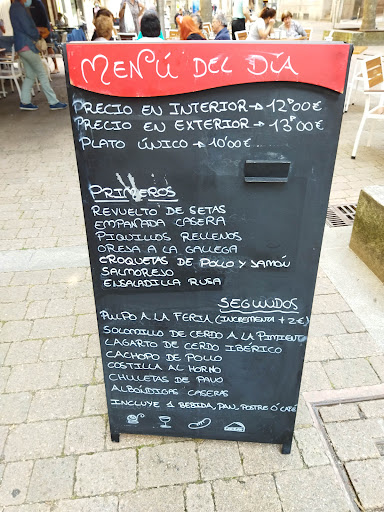 MENÚ DEL DÍA
PRECIO EN INTERIOR → 12'00€
PRECIO EN EXTERIOR → 13'00€
PLATO ÚNICO → 10'00€
PRIMEROS
REVUELTO DE SETAS
EMPANADA CASERA
PIQUILLOS RELLENOS
OREJA A LA GALLEGA
CROQUETAS DE POLLO Y JAMÓN
SALMOREJO
ENSALADILLA RUSA
SEGUNDOS
PULPO A LA FERIA (INCREMENTA +2€)
SOLOMILLO DE CERDO A LA PIMIENTA
LAGARTO DE CERDO IBÉRICO
CACHOPO DE POLLO
COSTILLA AL HORNO
CHULETAS DE PAVO
ALBÓNDIGAS CASERAS
INCLUYE 1 BEBIDA, PAN, POSTRE Ó CAFÉ